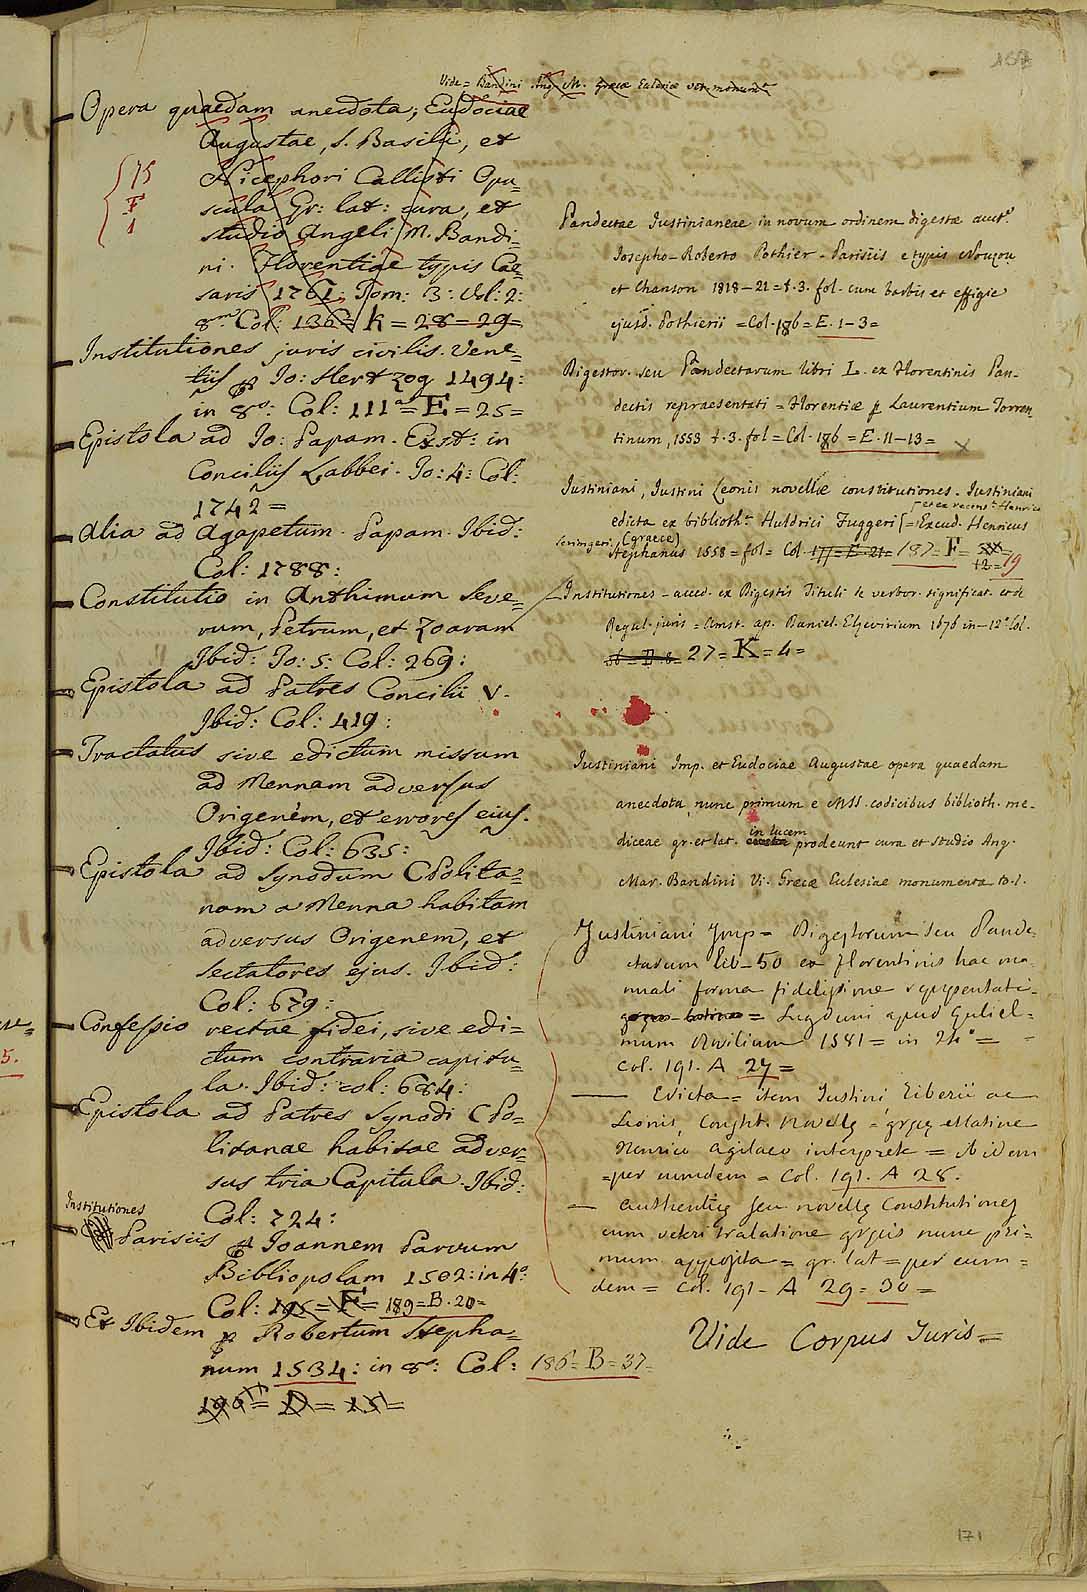 157
Vide = Bandini Ang. M. Graecae Ecclesiae vet. monum.
Opera quaedam anecdota, Eudociae
Augustae, S. Basilii, et
Nicephori Callisti Opu=
scula Gr: lat: cura, et
studio Angeli M. Bandi=
ni. Florentiae typis Cae=
saris 1761: Tom: 3: Vol: 2:
8.vo Col: 136 = K = 28 = 29 =
75
F
1
Institutiones juris civilis. Vene=
tiis p Jo: Hertzog 1494:
in 8.o: Col: 111.a = E = 25 =
Epistola ad Jo: Papam. Exst: in
Conciliis Labbei. To: 4: Col:
1742 =
Alia ad Agapetum Papam. Ibid:
Col: 1788:
Constitutio in Anthimum Seve=
rum, Petrum, et Zoaram
Ibid: To: 5: Col: 269:
Epistola ad Patres Concilii V.
Ibid: Col: 419:
Tractatus sive edictum missum
ad Mennam adversus
Origenem, et errores ejus.
Ibid: Col: 635:
Epistola ad Synodum CPolita=
nam a Menna habitam
adversus Origenem, et
sectatores ejus. Ibid:
Col: 679:
Confessio rectae fidei, sive edi=
ctum contraria capitu=
la. Ibid: col: 684:
Epistola ad Patres Synodi CPo=
litanae habitae adver=
sus tria Capitula. Ibid:
Col: 724:
Institutiones
Parisiis p Joannem Parvum
Bibliopolam 1502: in 4.o:
Col: 195 = F = 189 = B. 20 =
Et Ibidem p Robertum Stepha=
num 1534: in 8.o: Col: 186 = B = 37 =
196 = D = 15 =
Pandectae Justinianeae in novum ordinem digestae auct.e
Josepho-Roberto Pothier - Parisiis e typis Nouzou
et Chanson 1818-21 = t. 3. fol. cum barbis et effigie
ejusd. Pothierii = Col. 186 = E. 1-3 =
Digestor. seu Pandectarum libri L. ex Florentinis Pan-
dectis repraesentati = Florentiae p Laurentium Torren
tinum, 1553 t. 3. fol = Col. 186 = E. 11-13 = x
Justiniani, Justini Leonis novellae constitutiones. Justiniani
edicta ex biblioth. Huldrici Fuggeri [= Excud. Henricus
[et ex recens. Henrici
Scrimgeri. (graece)
Stephanus 1558 = fol = Col. 177 = E. 21 = 187 = F =
12 = 19
— Institutiones - acced. ex Digestis Tituli de verbor. significat. et de
Regul. juris = Amst. ap. Daniel. Elzevirium 1676 in-12.o Col.
56 = D. 8 = 27 = K = 4 =
Justiniani Imp. et Eudociae Augustae opera quaedam
anecdota, nunc primum e MSS. codicibus biblioth. me-
diceae gr. et lat. in lucem prodeunt cura et studio Ang.
Mar. Bandini Vi. Graecae Eclesiae monumenta to. 1.
Justiniani Imp = Digestorum seu Pande=
ctarum Lib - 50 ex florentinis hac ma=
nuali forma fidelissime repraesentati =
Lugduni apud Guliel=
mum Rovilium 1581 = in 24.o =
col. 191. A 27 =
— Edicta = item Justini, Tiberii ac
Leonis, Consht. Novellę = gręcę et latine
Henrico Agilaeo interprete = ibidem
= per eumdem = Col. 191. A 28.
— Authenticę seu novellę Constitutiones
cum veteri tralatione gręcis nunc pri=
mum apposita = gr. lat = per eum=
dem = Col. 191 - A 29 = 30 =
Vide Corpus Juris =
171